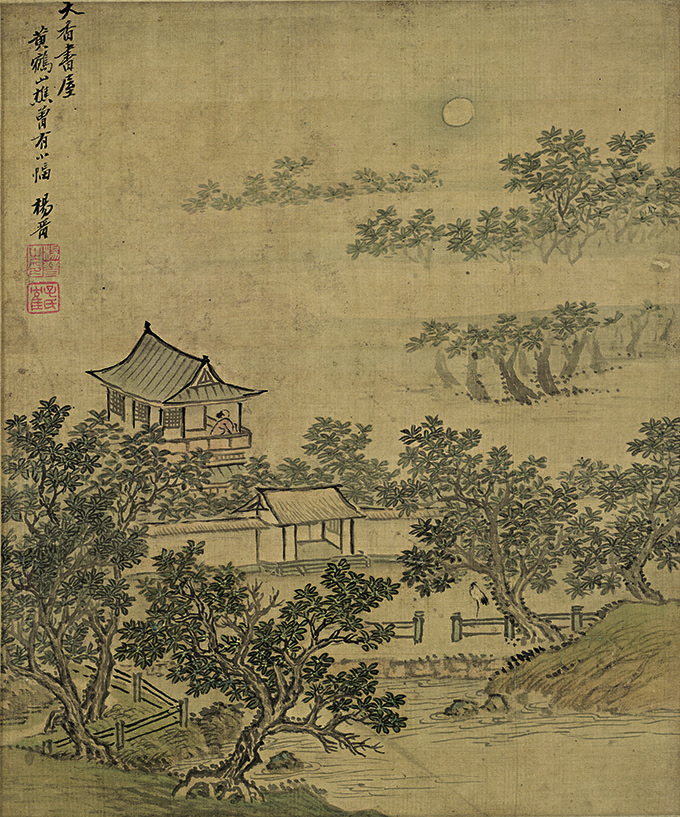 天香書屋
黄鶴山樵曾有小幅 楊晉